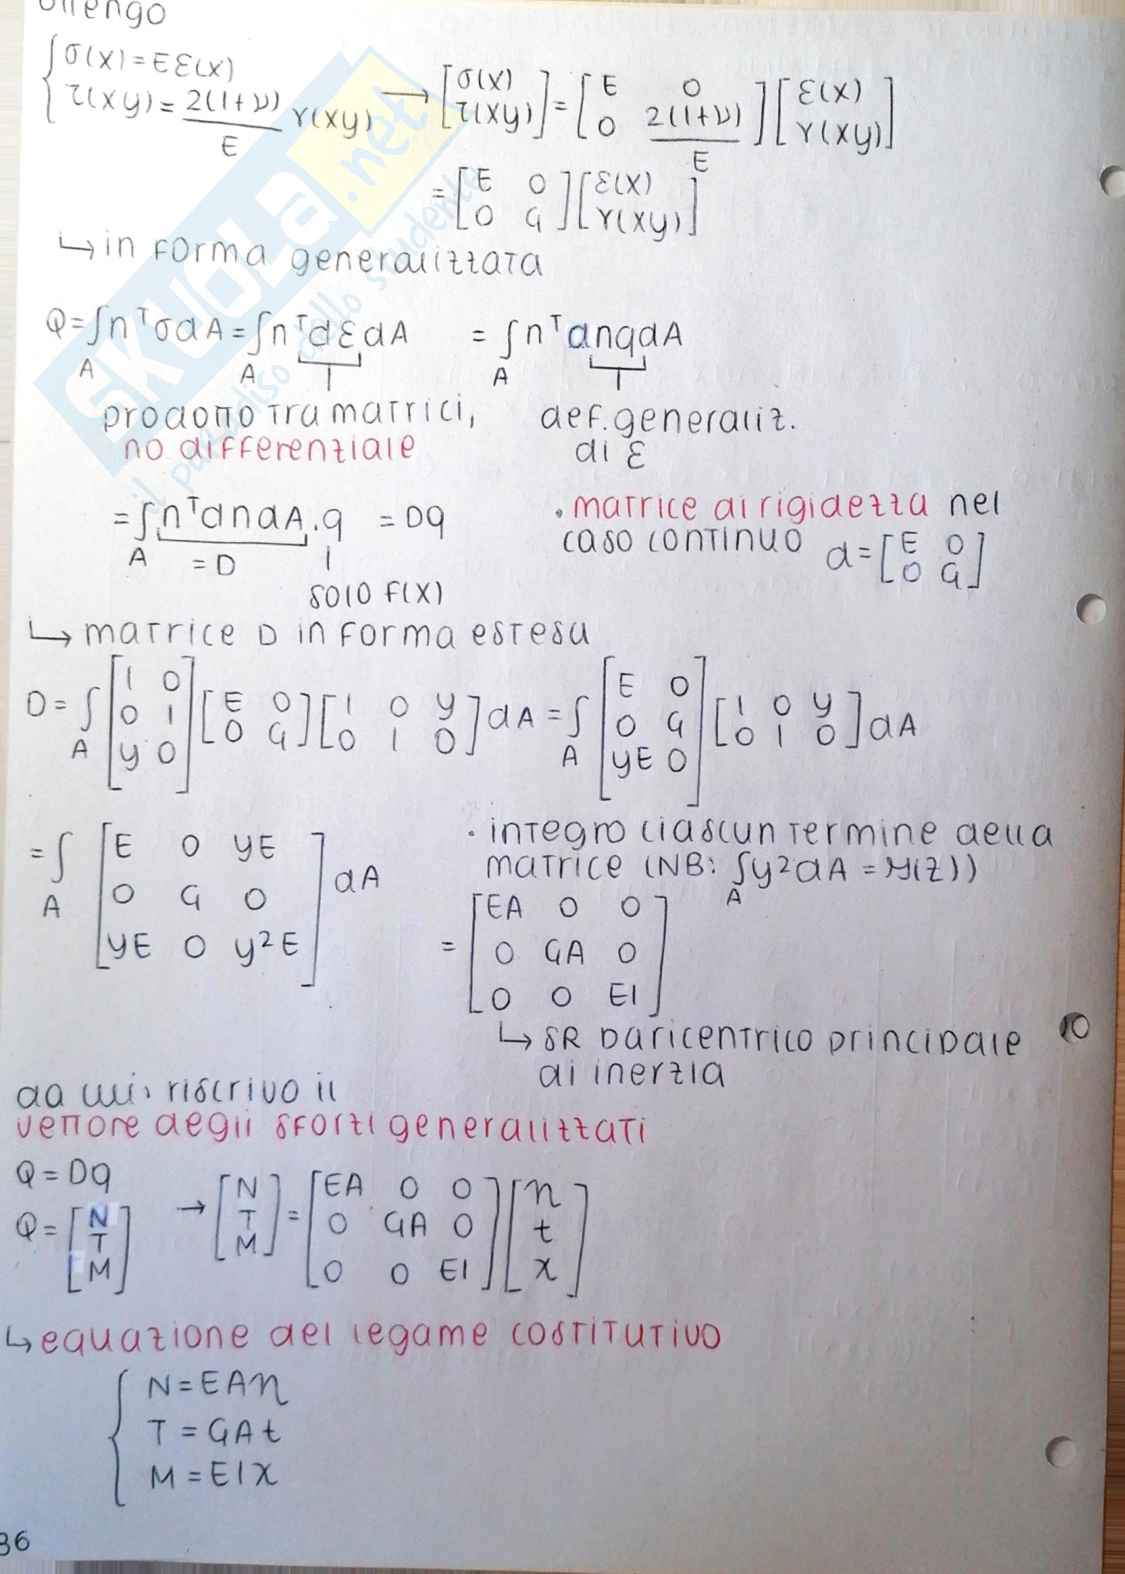 ottengo
σ(x)=Eε(x)
τ(xy)=2(1+ν)/E γ(xy) → [σ(x) τ(xy)] = [E 0 0 2(1+ν)/E] [ε(x) γ(xy)]
= [E 0 0 G] [ε(x) γ(xy)]
↳ in forma generalizzata
Q=∫A nᵀσdA = ∫A nᵀdεdA = ∫A nᵀdnqdA
prodotto tra matrici, def. generaliz.
no differenziale di ε
= ∫A nᵀdndA · q = Dq
= D
solo f(x)
· matrice di rigidezza nel
caso continuo d=[E 0 0 G]
↳ matrice D in forma estesa
D= ∫A [1 0 0 1 y 0] [E 0 0 G] [1 0 y 0 1 0] dA = ∫A [E 0 0 G yE 0] [1 0 y 0 1 0] dA
= ∫A [E 0 yE 0 G 0 yE 0 y²E] dA
· integro ciascun termine della
matrice (NB: ∫A y²dA = I(z))
= [EA 0 0 0 GA 0 0 0 EI]
↳ SR baricentrico principale
di inerzia
da cui, riscrivo il
vettore degli sforzi generalizzati
Q = Dq
Q = [N T M] → [N T M] = [EA 0 0 0 GA 0 0 0 EI] [η t χ]
↳ equazione del legame costitutivo
N = EAη
T = GAt
M = EIχ
36
SKUOLA.net
il paradiso dello studente